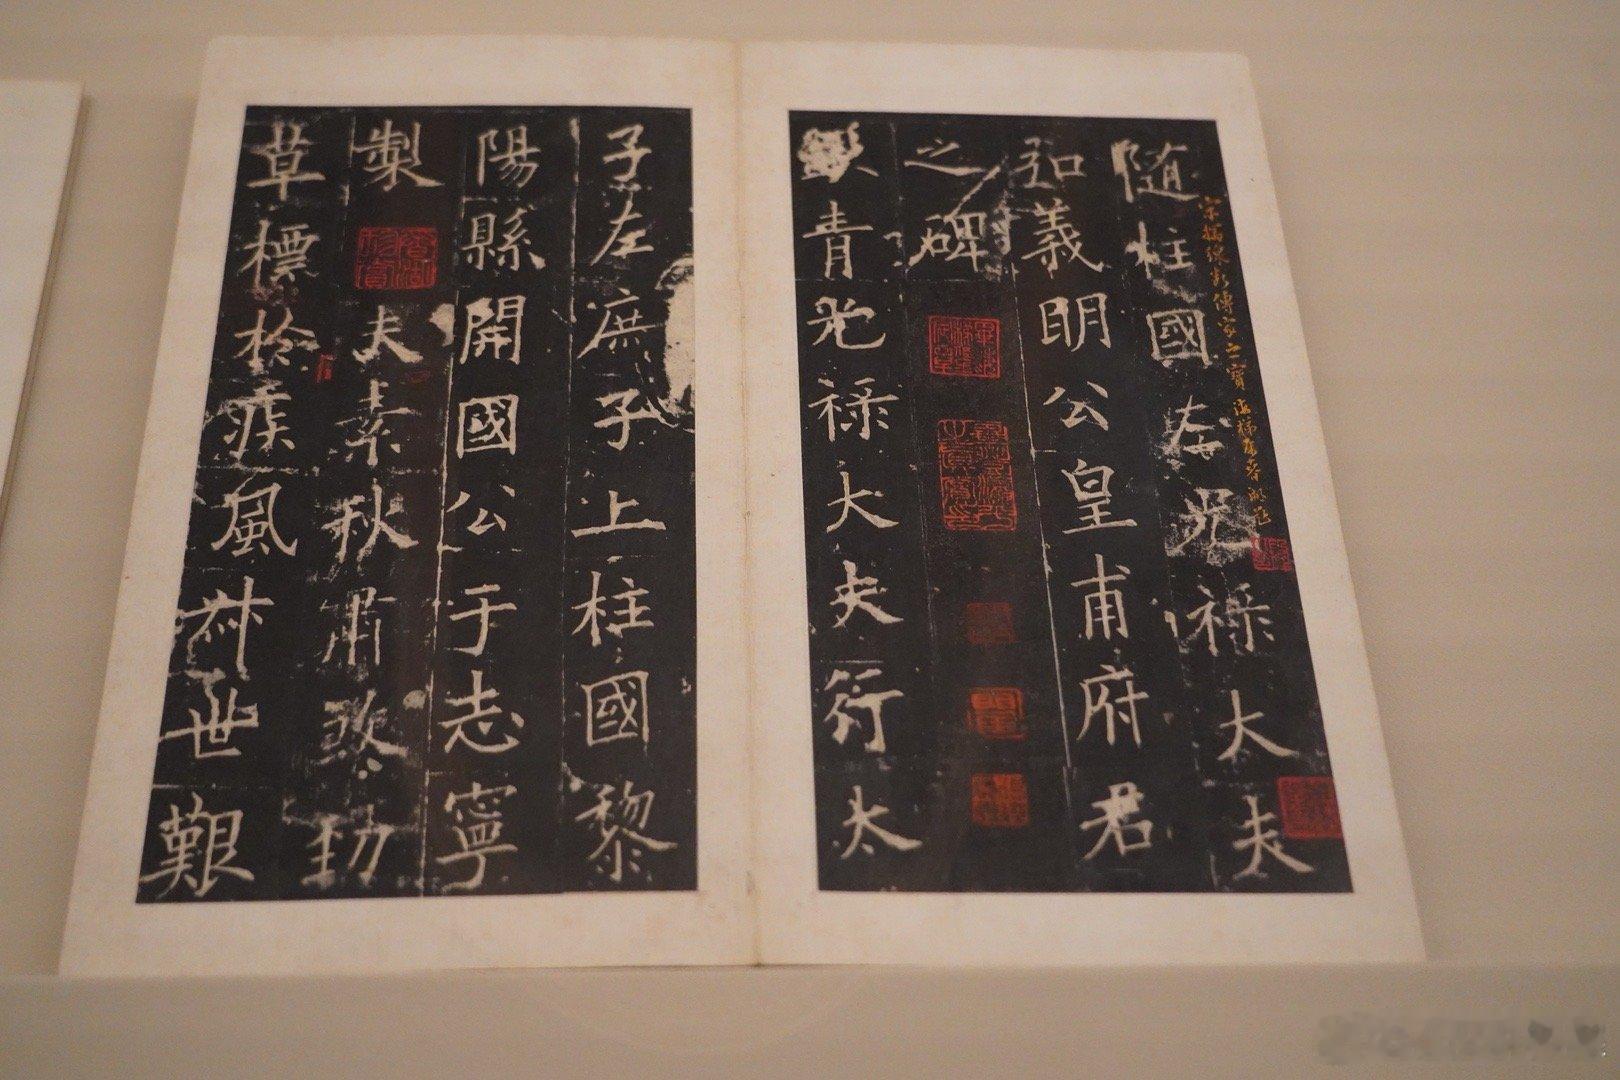 傳家之寶
隨柱國左光祿大夫
弘義明公皇甫府君
之碑
銀青光祿大夫行太
子左庶子上柱國黎
陽縣開國公于志寧
製 夫素秋肅煞勁
草標於疾風叔世艱